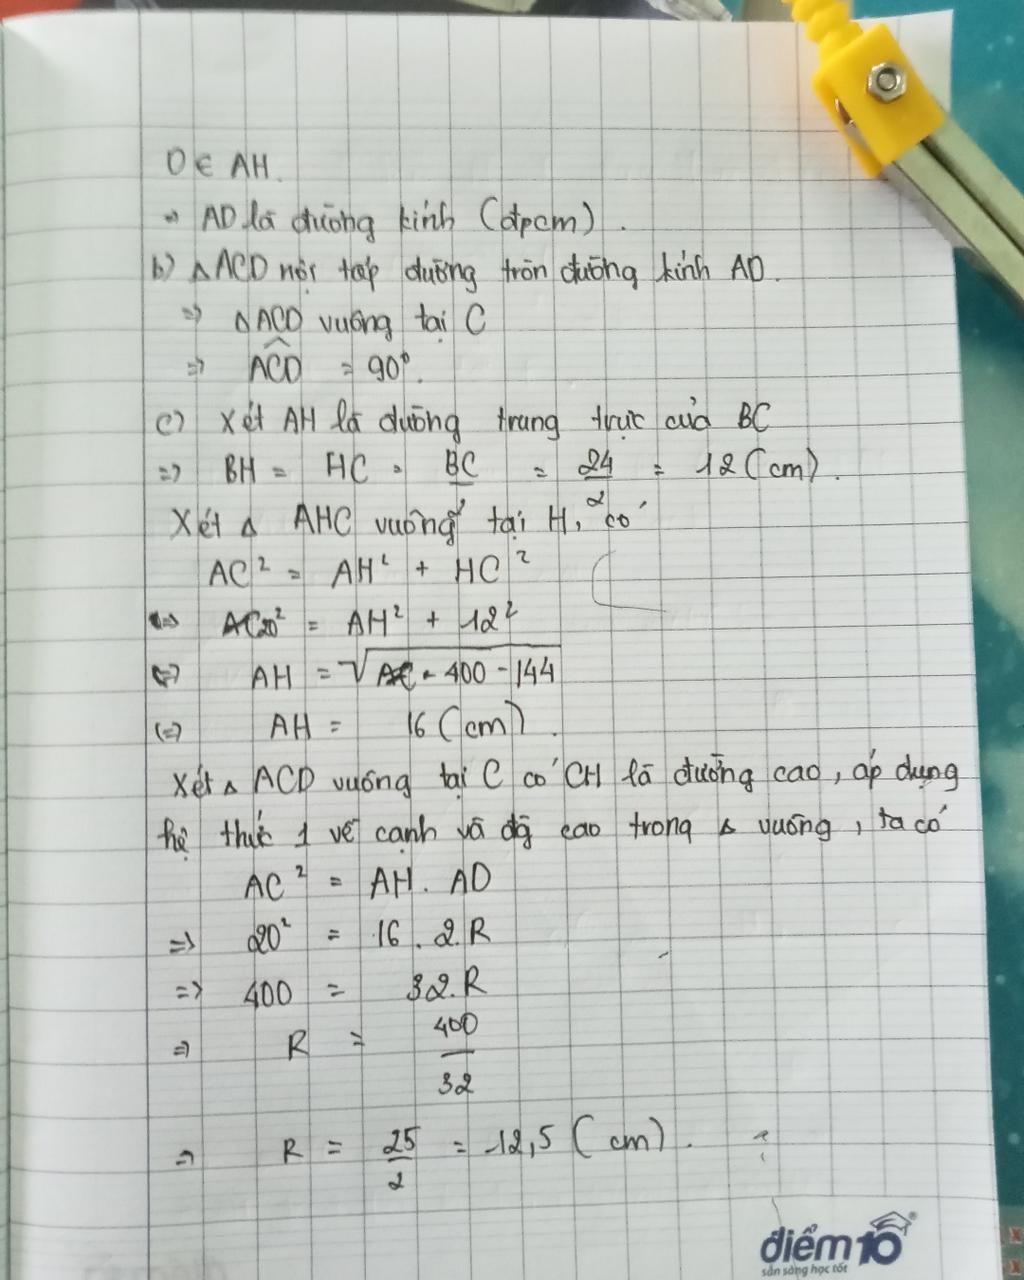 O ∈ AH.
⇒ AD là đường kính (đpcm).
b) △ACD nội tiếp đường tròn đường kính AD.
⇒ △ACD vuông tại C
⇒ ACD = 90°.
c) Xét AH là đường trung trực của BC
⇒ BH = HC = BC/2 = 24/2 = 12 (cm).
Xét △ AHC vuông tại H, có
AC² = AH² + HC²
⇔ 20² = AH² + 12²
⇔ AH = √400 - 144
⇔ AH = 16 (cm).
Xét △ ACD vuông tại C có CH là đường cao, áp dụng
hệ thức 1 về cạnh và độ cao trong △ vuông, ta có
AC² = AH. AD
⇒ 20² = 16. 2.R
⇒ 400 = 32.R
⇒ R = 400/32
⇒ R = 25/2 = 12,5 (cm).
điểm 10
sẵn sàng học tốt